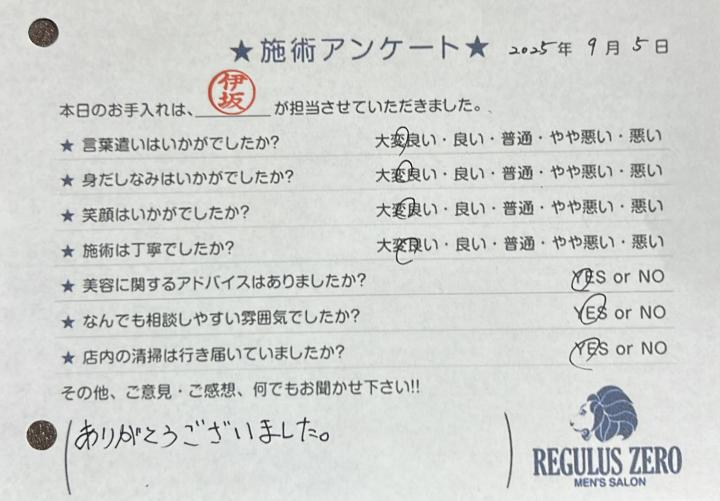 ★施術アンケート★ 2025年 9月 5日
本日のお手入れは、伊坂が担当させていただきました。
★ 言葉遣いはいかがでしたか? 大変良い・良い・普通・やや悪い・悪い
★ 身だしなみはいかがでしたか? 大変良い・良い・普通・やや悪い・悪い
★ 笑顔はいかがでしたか? 大変良い・良い・普通・やや悪い・悪い
★ 施術は丁寧でしたか? 大変良い・良い・普通・やや悪い・悪い
★ 美容に関するアドバイスはありましたか? YES or NO
★ なんでも相談しやすい雰囲気でしたか? YES or NO
★ 店内の清掃は行き届いていましたか? YES or NO
その他、ご意見・ご感想、何でもお聞かせ下さい!!
ありがとうございました。
REGULUS ZERO
MEN'S SALON